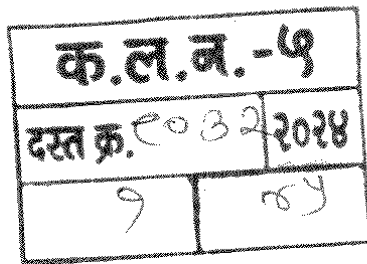 क.ल.न.-५
दस्त क्र. ९०३२ २०२४
१ ४५